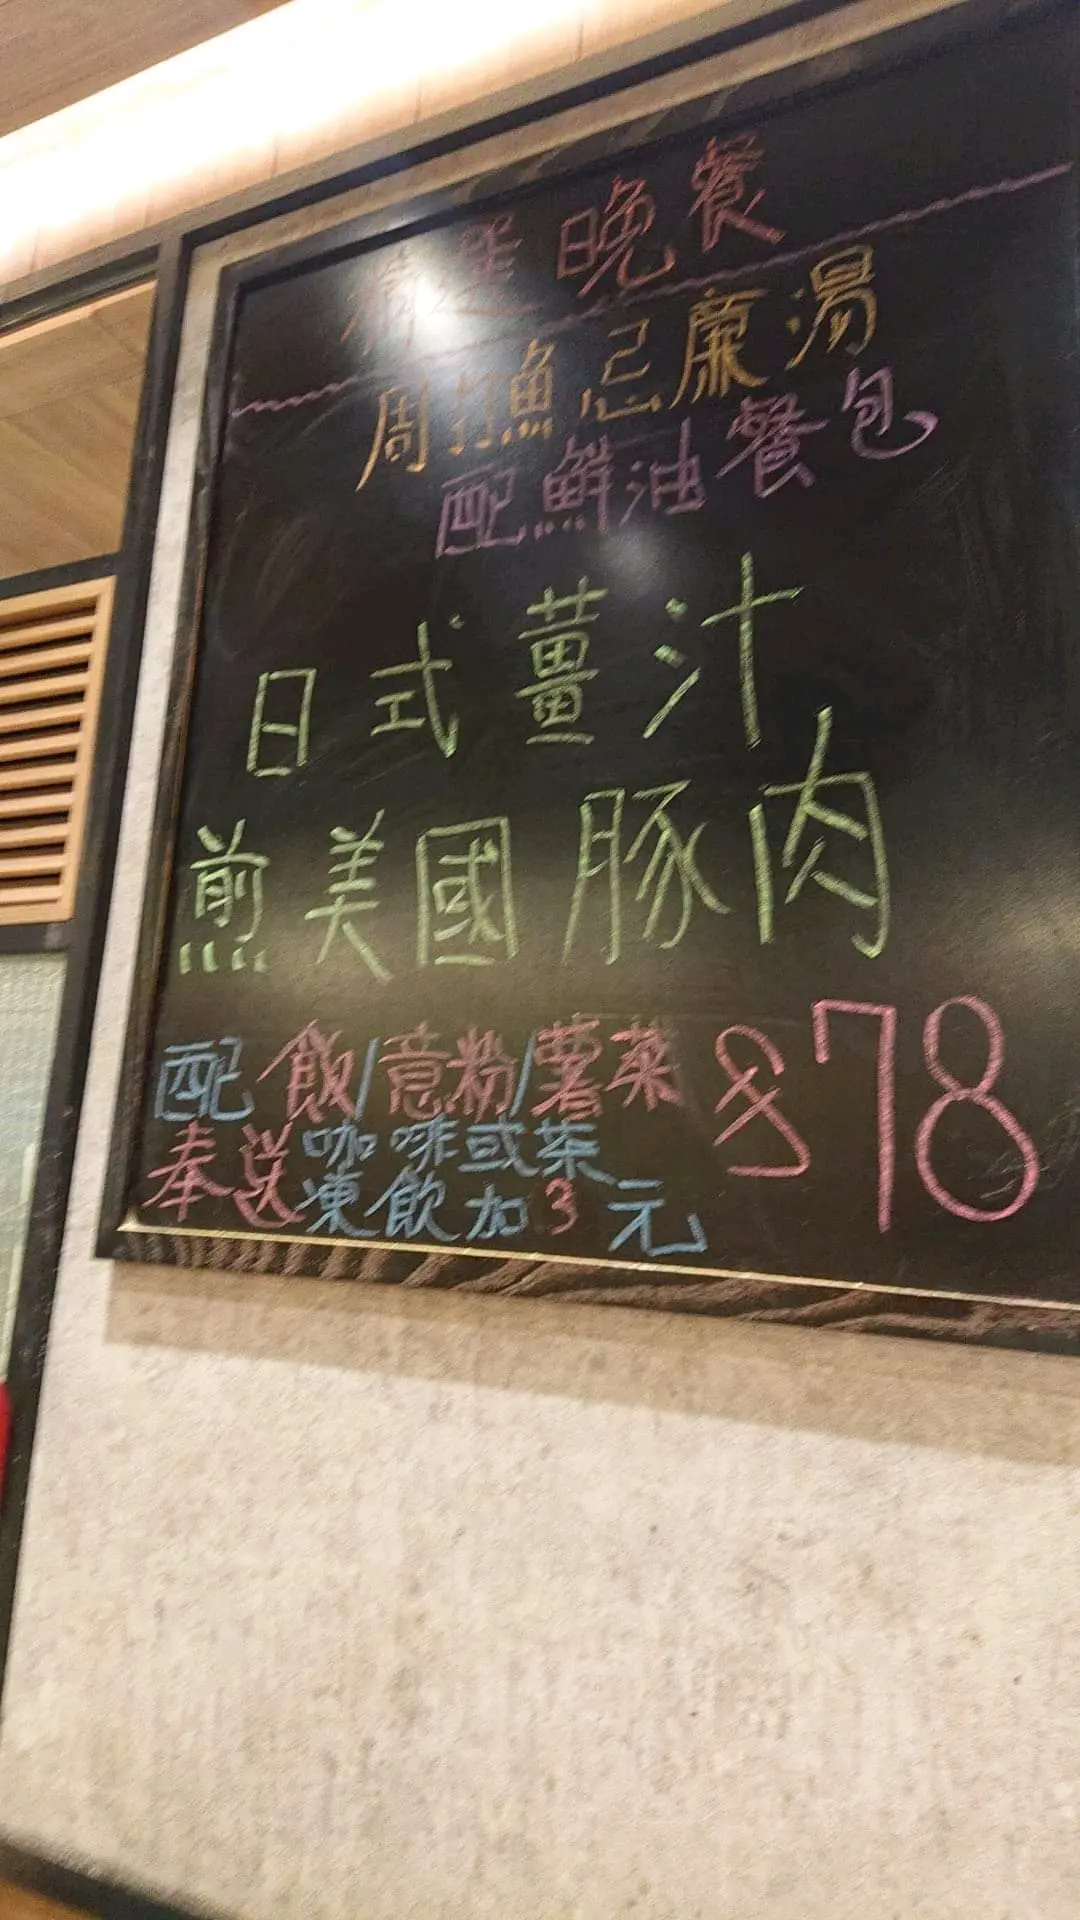 精選晚餐
周打魚忌廉湯
配鮮油餐包
日式薑汁
煎美國豚肉
配飯/意粉/薯菜 $78
奉送咖啡或茶
凍飲加3元